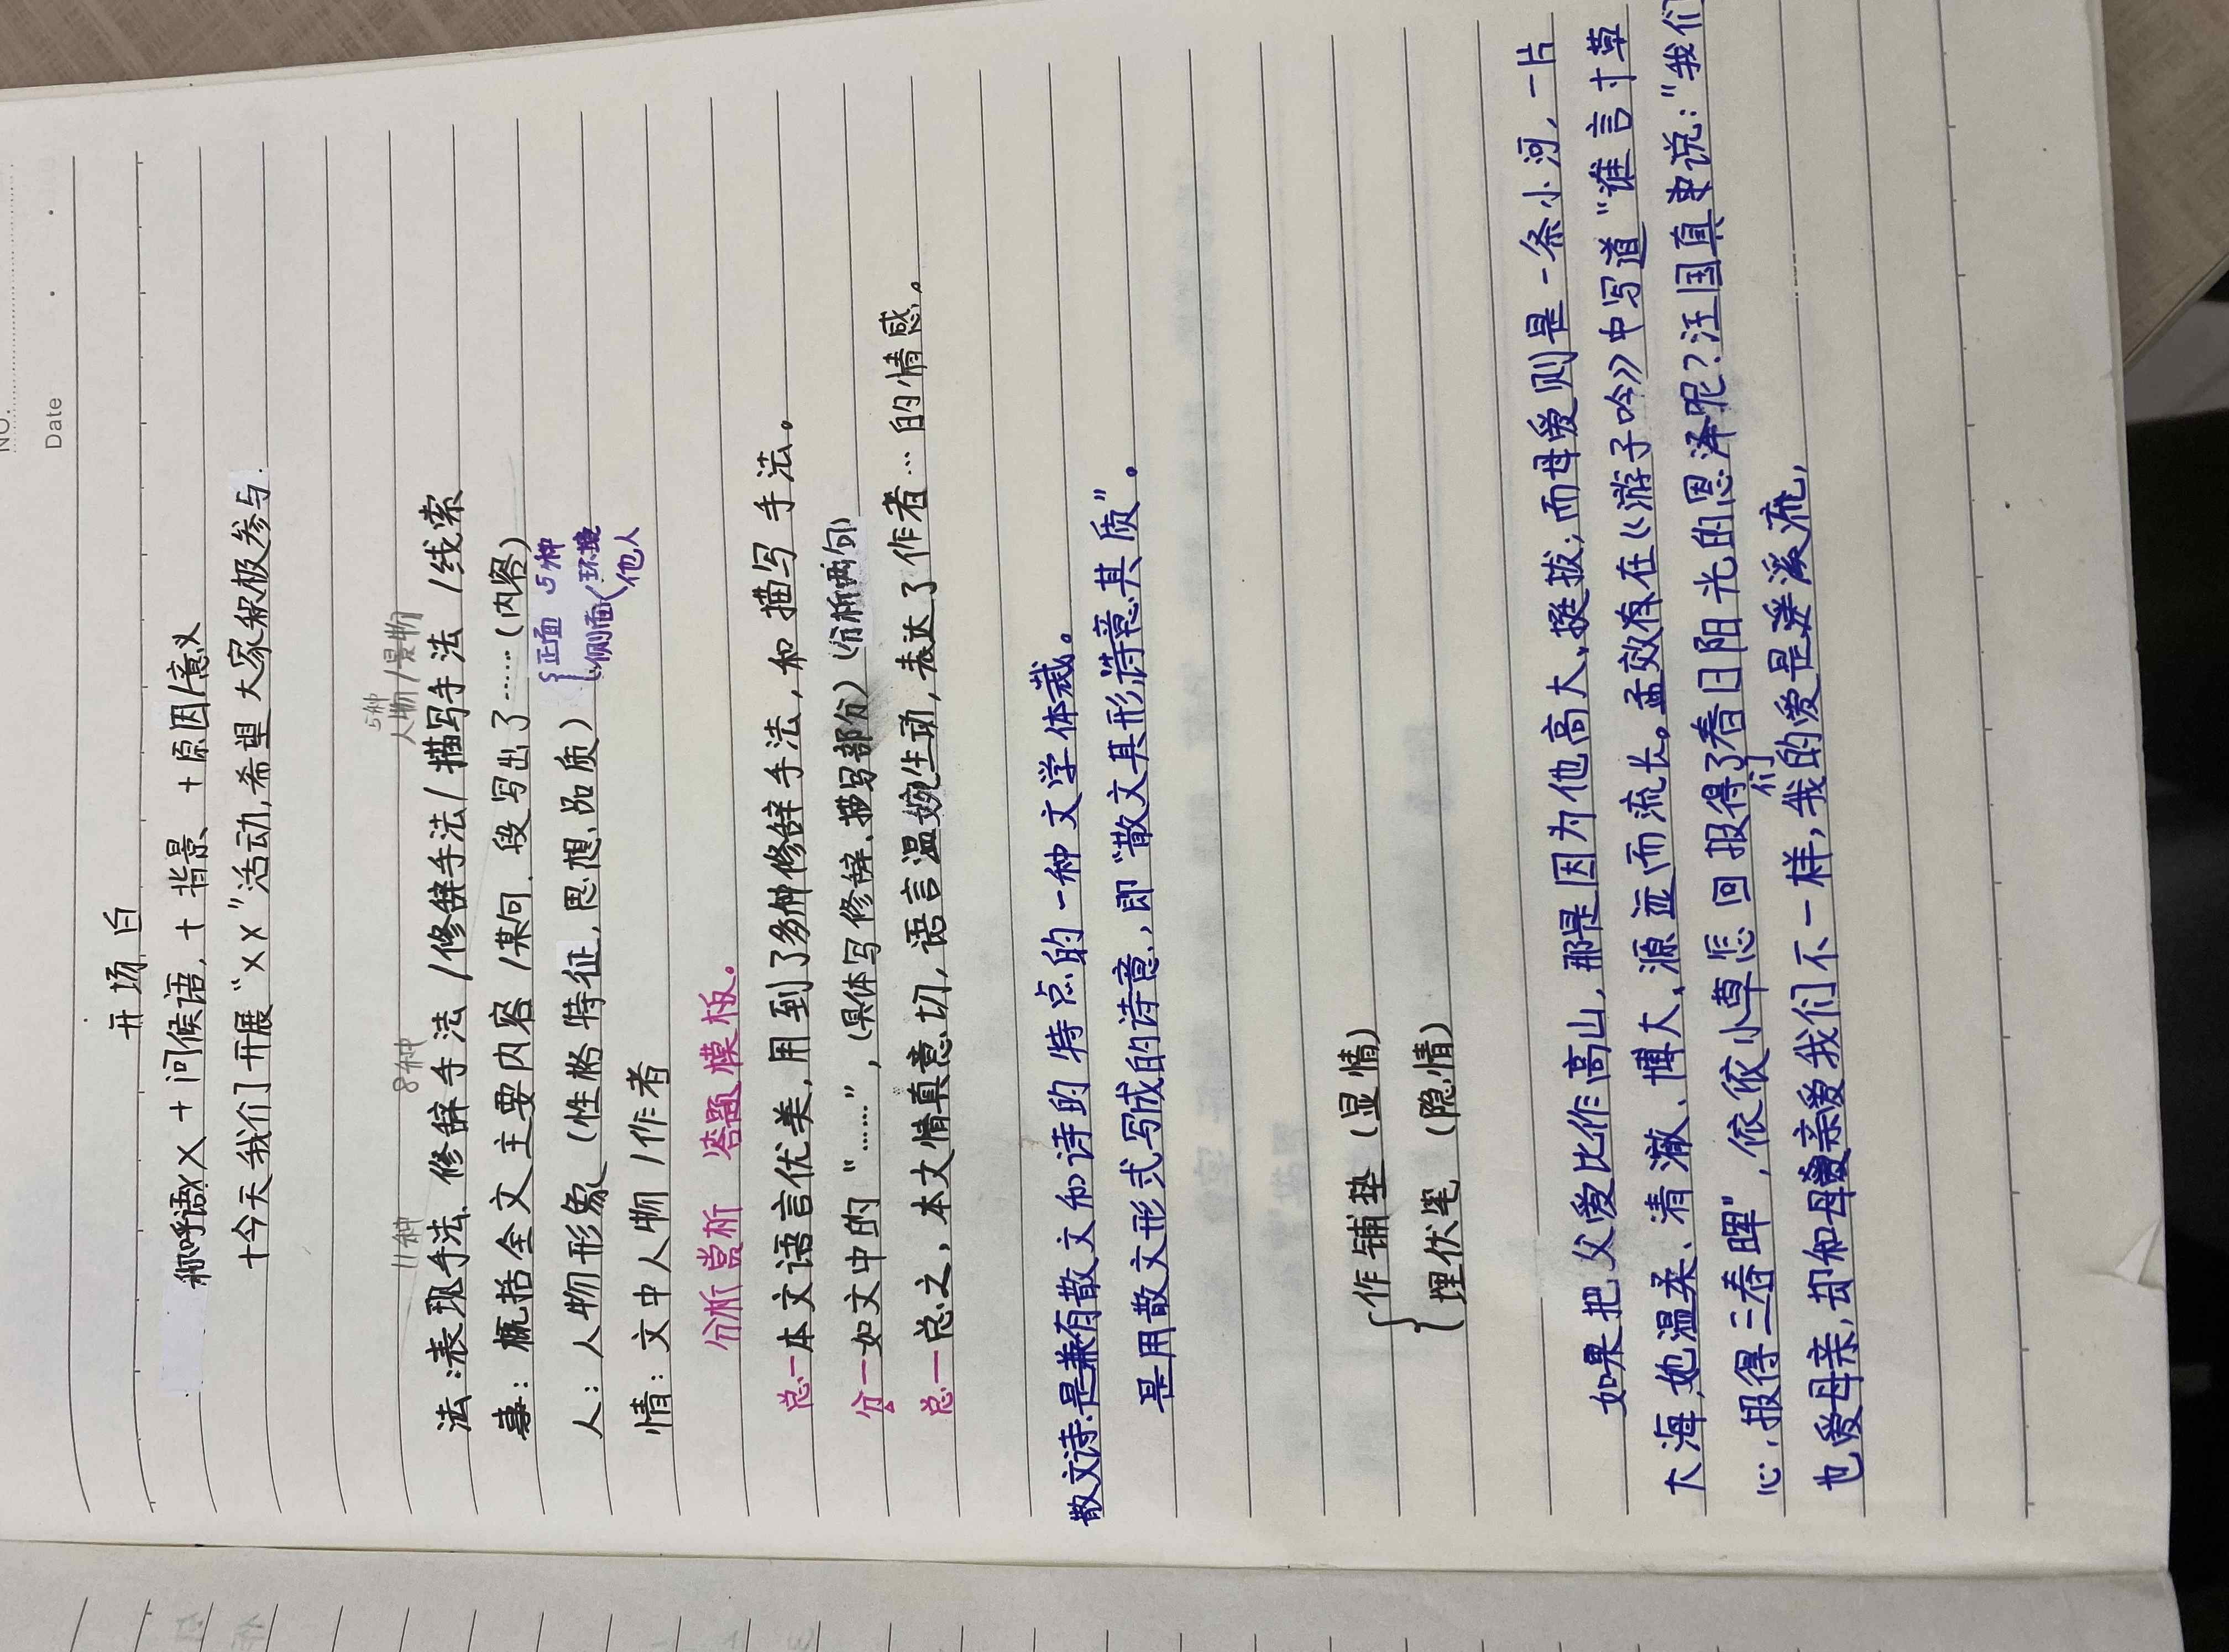 NO.
Date
开场白
称呼语 + 问候语, + 背景 + 原因/意义
+今天我们开展“××”活动,希望大家积极参与.
11种 8种 5种 人物/景物
法:表现手法、修辞手法/修辞手法/描写手法/线索
事:概括全文主要内容/某问.段写出了……(内容)
人:人物形象(性格特征,思想,品质) {正面 5种
侧面(环境
他人
情:文中人物/作者
分析赏析 答题模板。
总一本文语言优美,用到了多种修辞手法,和描写手法。
分一如文中的“……”,(具体写修辞、描写部分)(分析两句)
总一总之,本文情真意切,语言温婉生动,表达了作者…的情感。
散文诗:是兼有散文和诗的特点的一种文学体裁。
是用散文形式写成的诗意,即“散文其形,诗意其质”。
{作铺垫(显情)
埋伏笔(隐情)
如果把父爱比作高山,那是因为他高大、挺拔;而母爱则是一条小河,一片
大海,她温柔、清澈、博大、源远而流长。孟效存在《游子吟》中写道“谁言寸草
心,报得三春晖”,依依小草怎回报得了春日阳光的恩泽呢?汪国真更说:“我们
也爱母亲,却和母亲爱我们不一样,我们的爱是溪流,